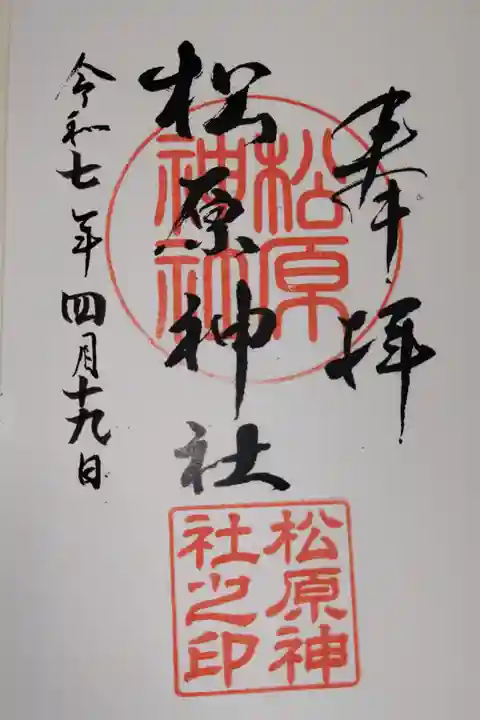 奉拝
松原神社
令和七年四月十九日
松原
神社
松原神
社之印